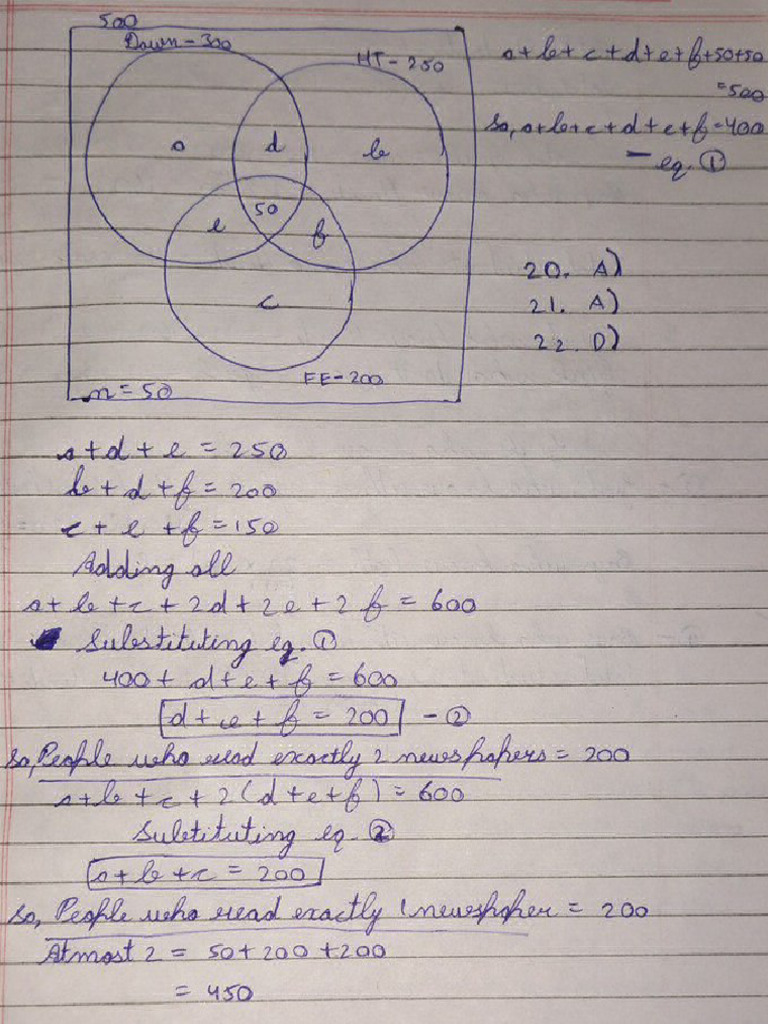 500
Dawn - 300
HT - 250
a
d
b
50
e
f
c
EE - 200
n = 50
a+b+c+d+e+f+50+50
=500
So, a+b+c+d+e+f=400
- eq. ①
20. A)
21. A)
22. D)
a+d+e = 250
b+d+f = 200
c+e+f = 150
Adding all
a+b+c+2d+2e+2f = 600
Substituting eq. ①
400+ d+e+f = 600
d+e+f = 200 - ②
So, People who read exactly 2 newspapers = 200
a+b+c+2(d+e+f) = 600
Substituting eq. ②
a+b+c = 200
So, People who read exactly 1 newspaper = 200
Atmost 2 = 50+200+200
= 450